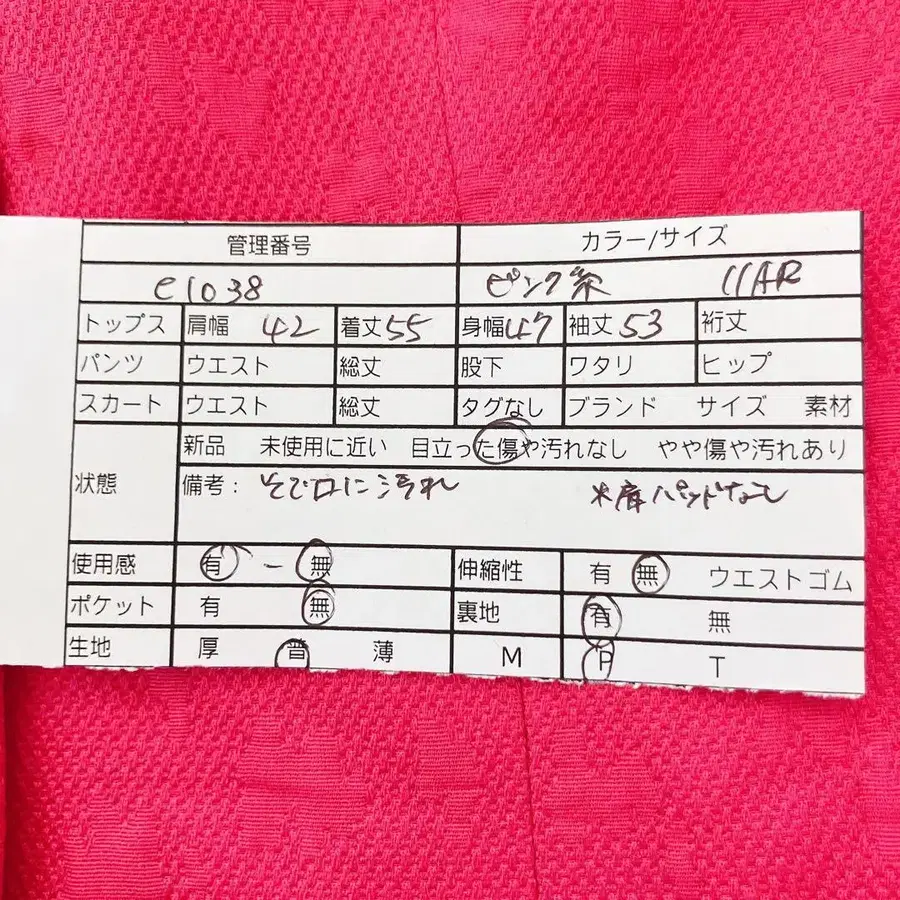 管理番号 カラー/サイズ
e1038 ピンク系 11AR
トップス 肩幅 42 着丈 55 身幅 47 袖丈 53 裄丈
パンツ ウエスト 総丈 股下 ワタリ ヒップ
スカート ウエスト 総丈 タグなし ブランド サイズ 素材
状態 新品 未使用に近い 目立った傷や汚れなし やや傷や汚れあり
備考: そで口に汚れ パッドなし
使用感 有 - 無 伸縮性 有 無 ウエストゴム
ポケット 有 無 裏地 有 無
生地 厚 普 薄 M P T